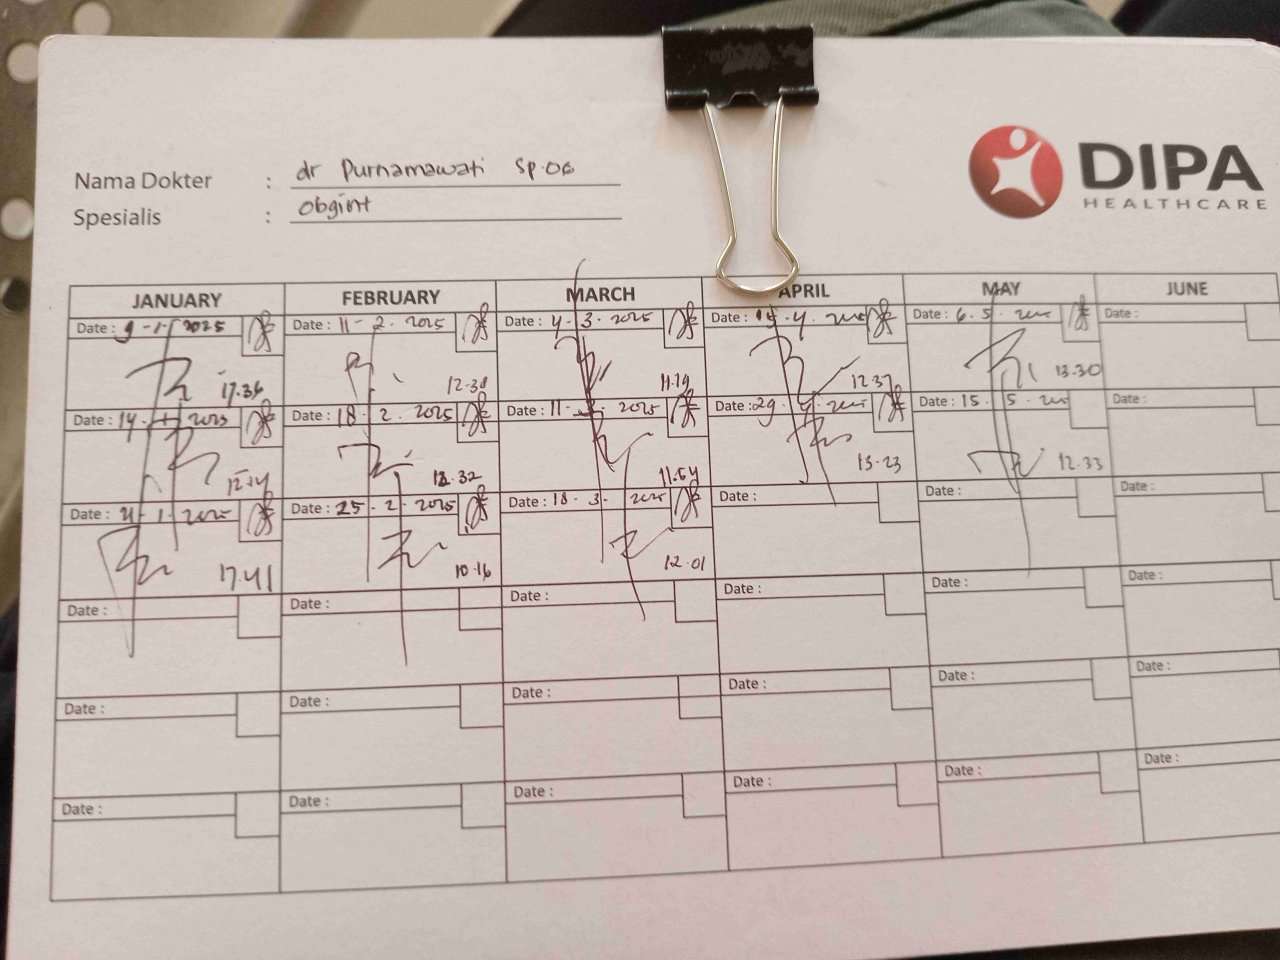 Nama Dokter : dr Purnamawati Sp.OG
Spesialis : Obgint
DIPA
HEALTHCARE
JANUARY FEBRUARY MARCH APRIL MAY JUNE
Date : 9-1-2025 Date : 11-2.2025 Date : 4-3.2025 Date : Date : 6.5. Date :
17.36 12.38 11.19 12.37 13.30
Date : 14 2025 Date : 18.2.2025 Date : 11- 2025 Date : 29 Date : 15.5. Date :
12.14 12.32 11.54 13.23 12.33
Date : 21-1-2025 Date : 25-2-2025 Date : 18-3- 2025 Date : Date : Date :
17.41 10.16 12.01
Date : Date : Date : Date : Date : Date :
Date : Date : Date : Date : Date : Date :
Date : Date : Date : Date : Date : Date :